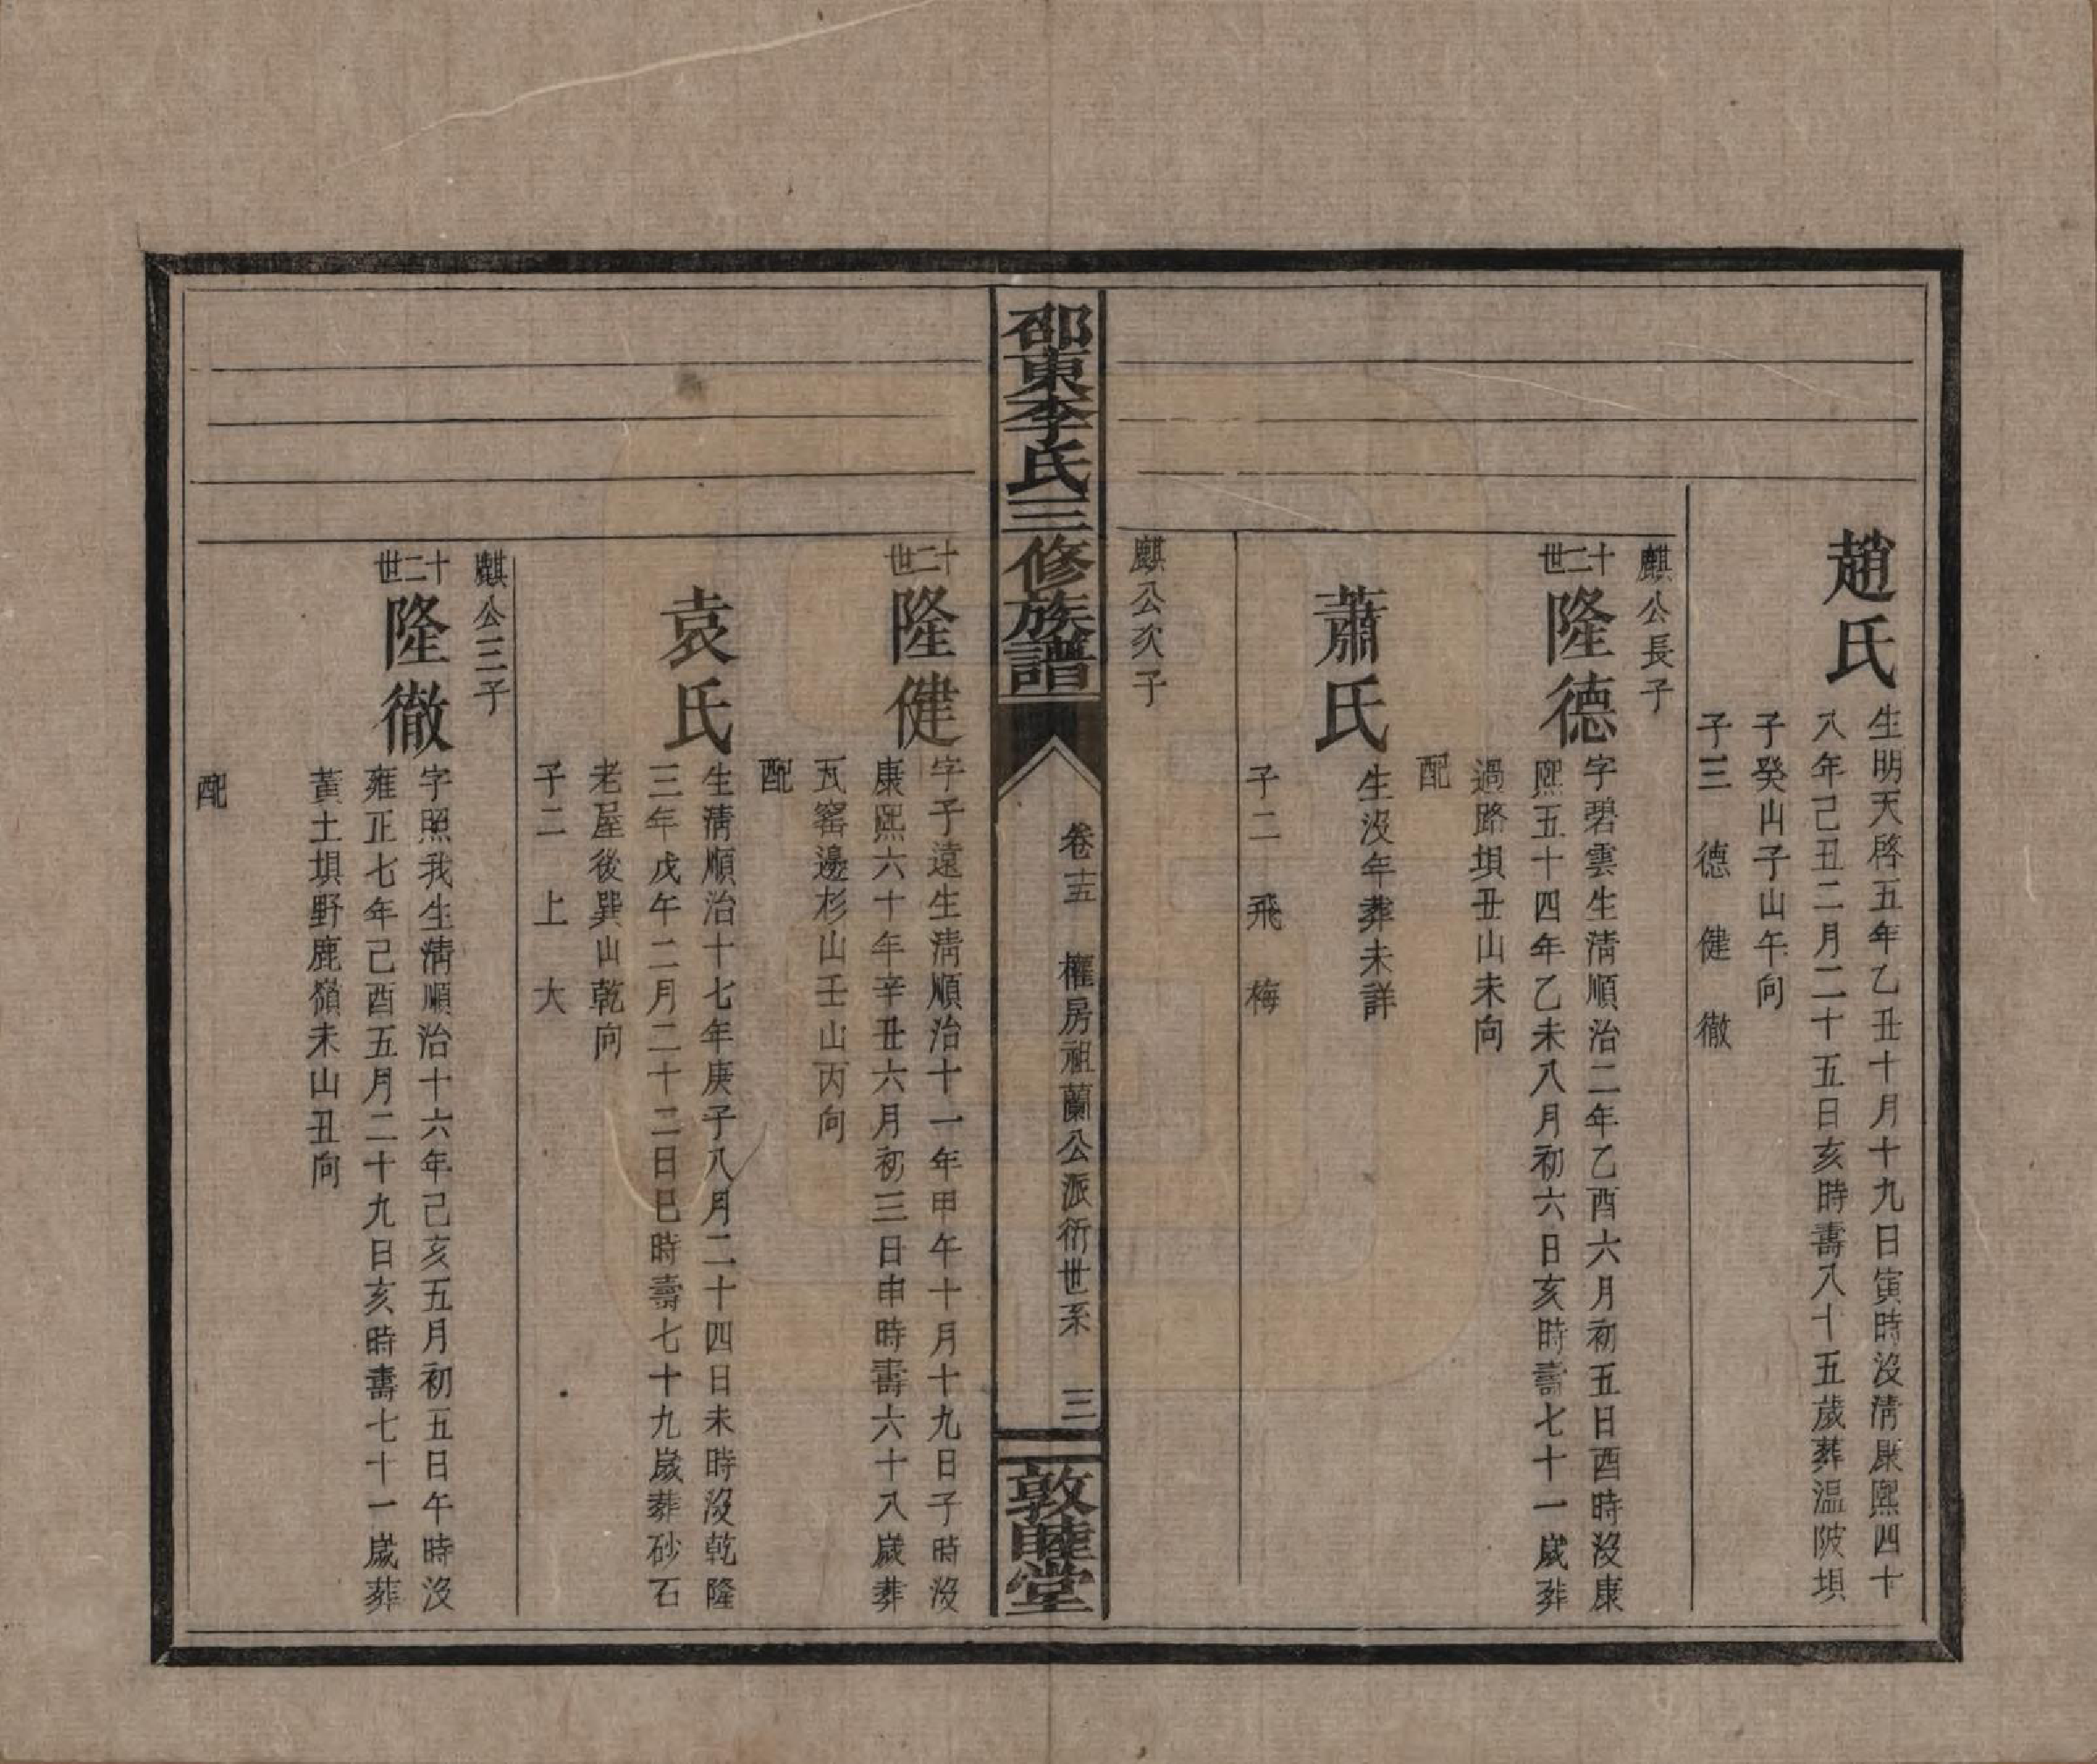 趙氏
生明天啓五年乙丑十月十九日寅時沒清康熙四十
八年己丑二月二十五日亥時壽八十五歲葬温陂垻
子癸山子山午向
子三　德　健　徹
麒公長子
十二世
隆德
字碧雲生清順治二年乙酉六月初五日酉時沒康
熙五十四年乙未八月初六日亥時壽七十一歲葬
過路垻丑山未向
配
蕭氏
生沒年葬未詳
子二　飛　梅
麒公次子
邵東李氏三修族譜
卷十五　權房祖蘭公派衍世系　三
敦睦堂
十二世
隆健
字子遠生清順治十一年甲午十月十九日子時沒
康熙六十年辛丑六月初三日申時壽六十八歲葬
瓦窰邊杉山壬山丙向
配
袁氏
生清順治十七年庚子八月二十四日未時沒乾隆
三年戊午二月二十二日巳時壽七十九歲葬砂石
老屋後巽山乾向
子二　上　大
麒公三子
十二世
隆徹
字照我生清順治十六年己亥五月初五日午時沒
雍正七年己酉五月二十九日亥時壽七十一歲葬
黃土垻野鹿嶺未山丑向
配